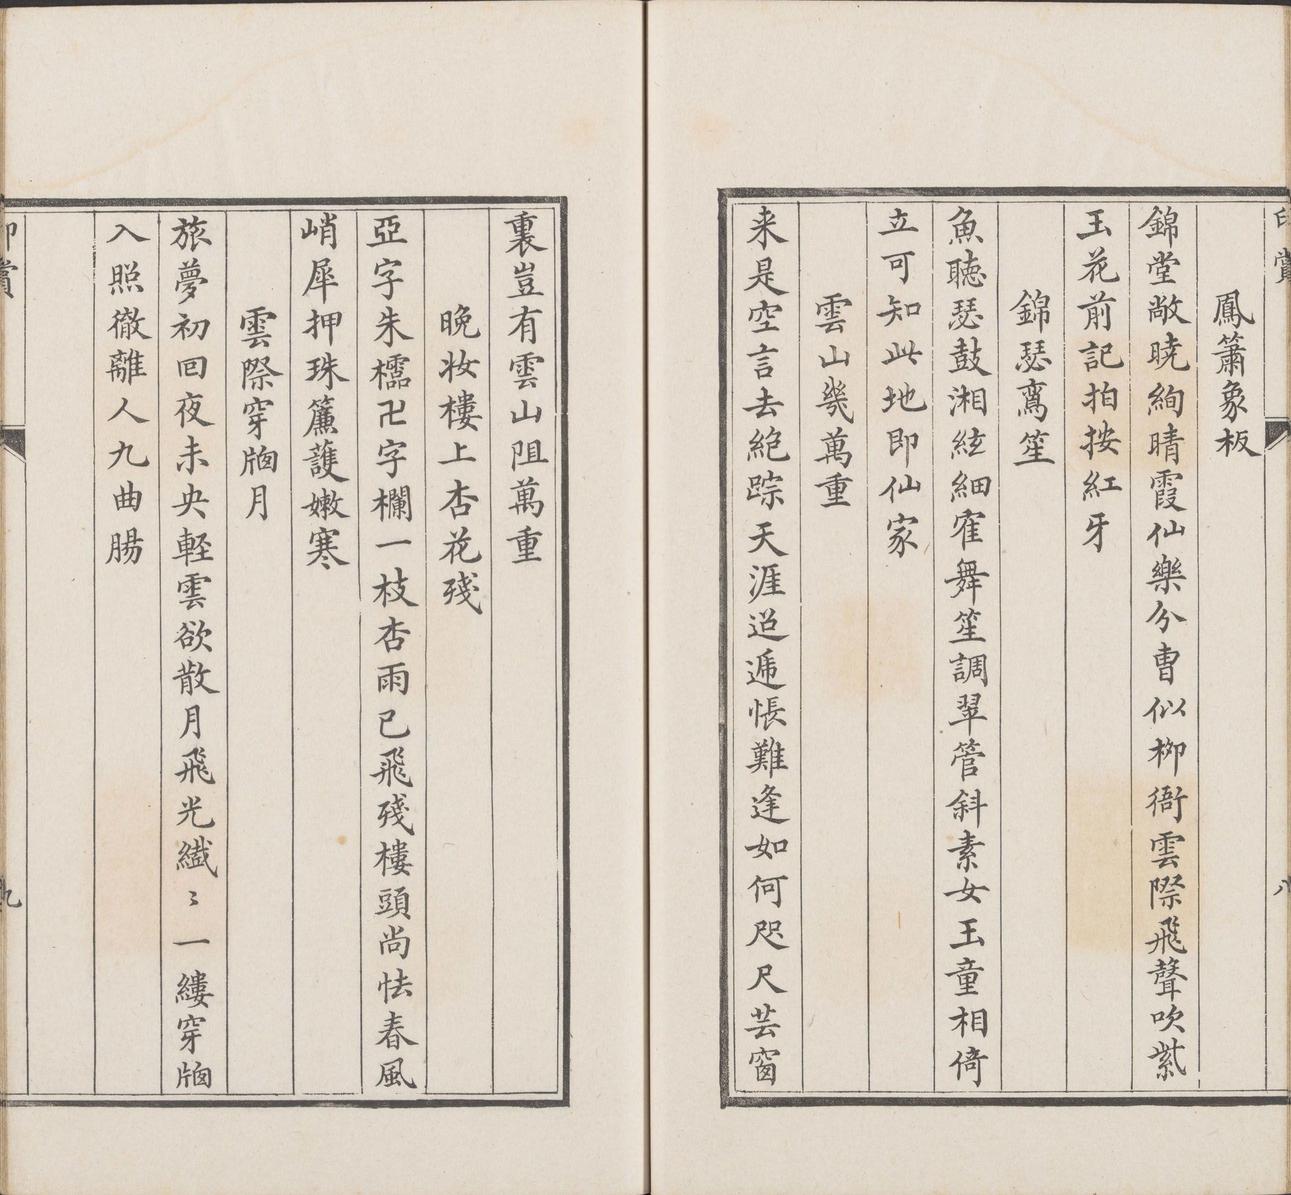 鳳簫象板
錦堂敞曉絢晴霞仙樂分曹似栁衙雲際飛聲吹紫
玉花前記拍按紅牙
錦瑟鸞笙
魚聴瑟鼓湘絃細寉舞笙調翠管斜素女玉童相倚
立可知此地即仙家
雲山幾萬重
来是空言去絕踪天涯迢遞悵難逢如何咫尺芸窗
裏豈有雲山阻萬重
晚妝樓上杏花殘
亞字朱櫺卍字欄一枝杏雨已飛殘樓頭尚怯春風
峭犀押珠簾護嫩寒
雲際穿牕月
旅夢初回夜未央輕雲欲散月飛光纎〻一縷穿牕
入照徹離人九曲腸